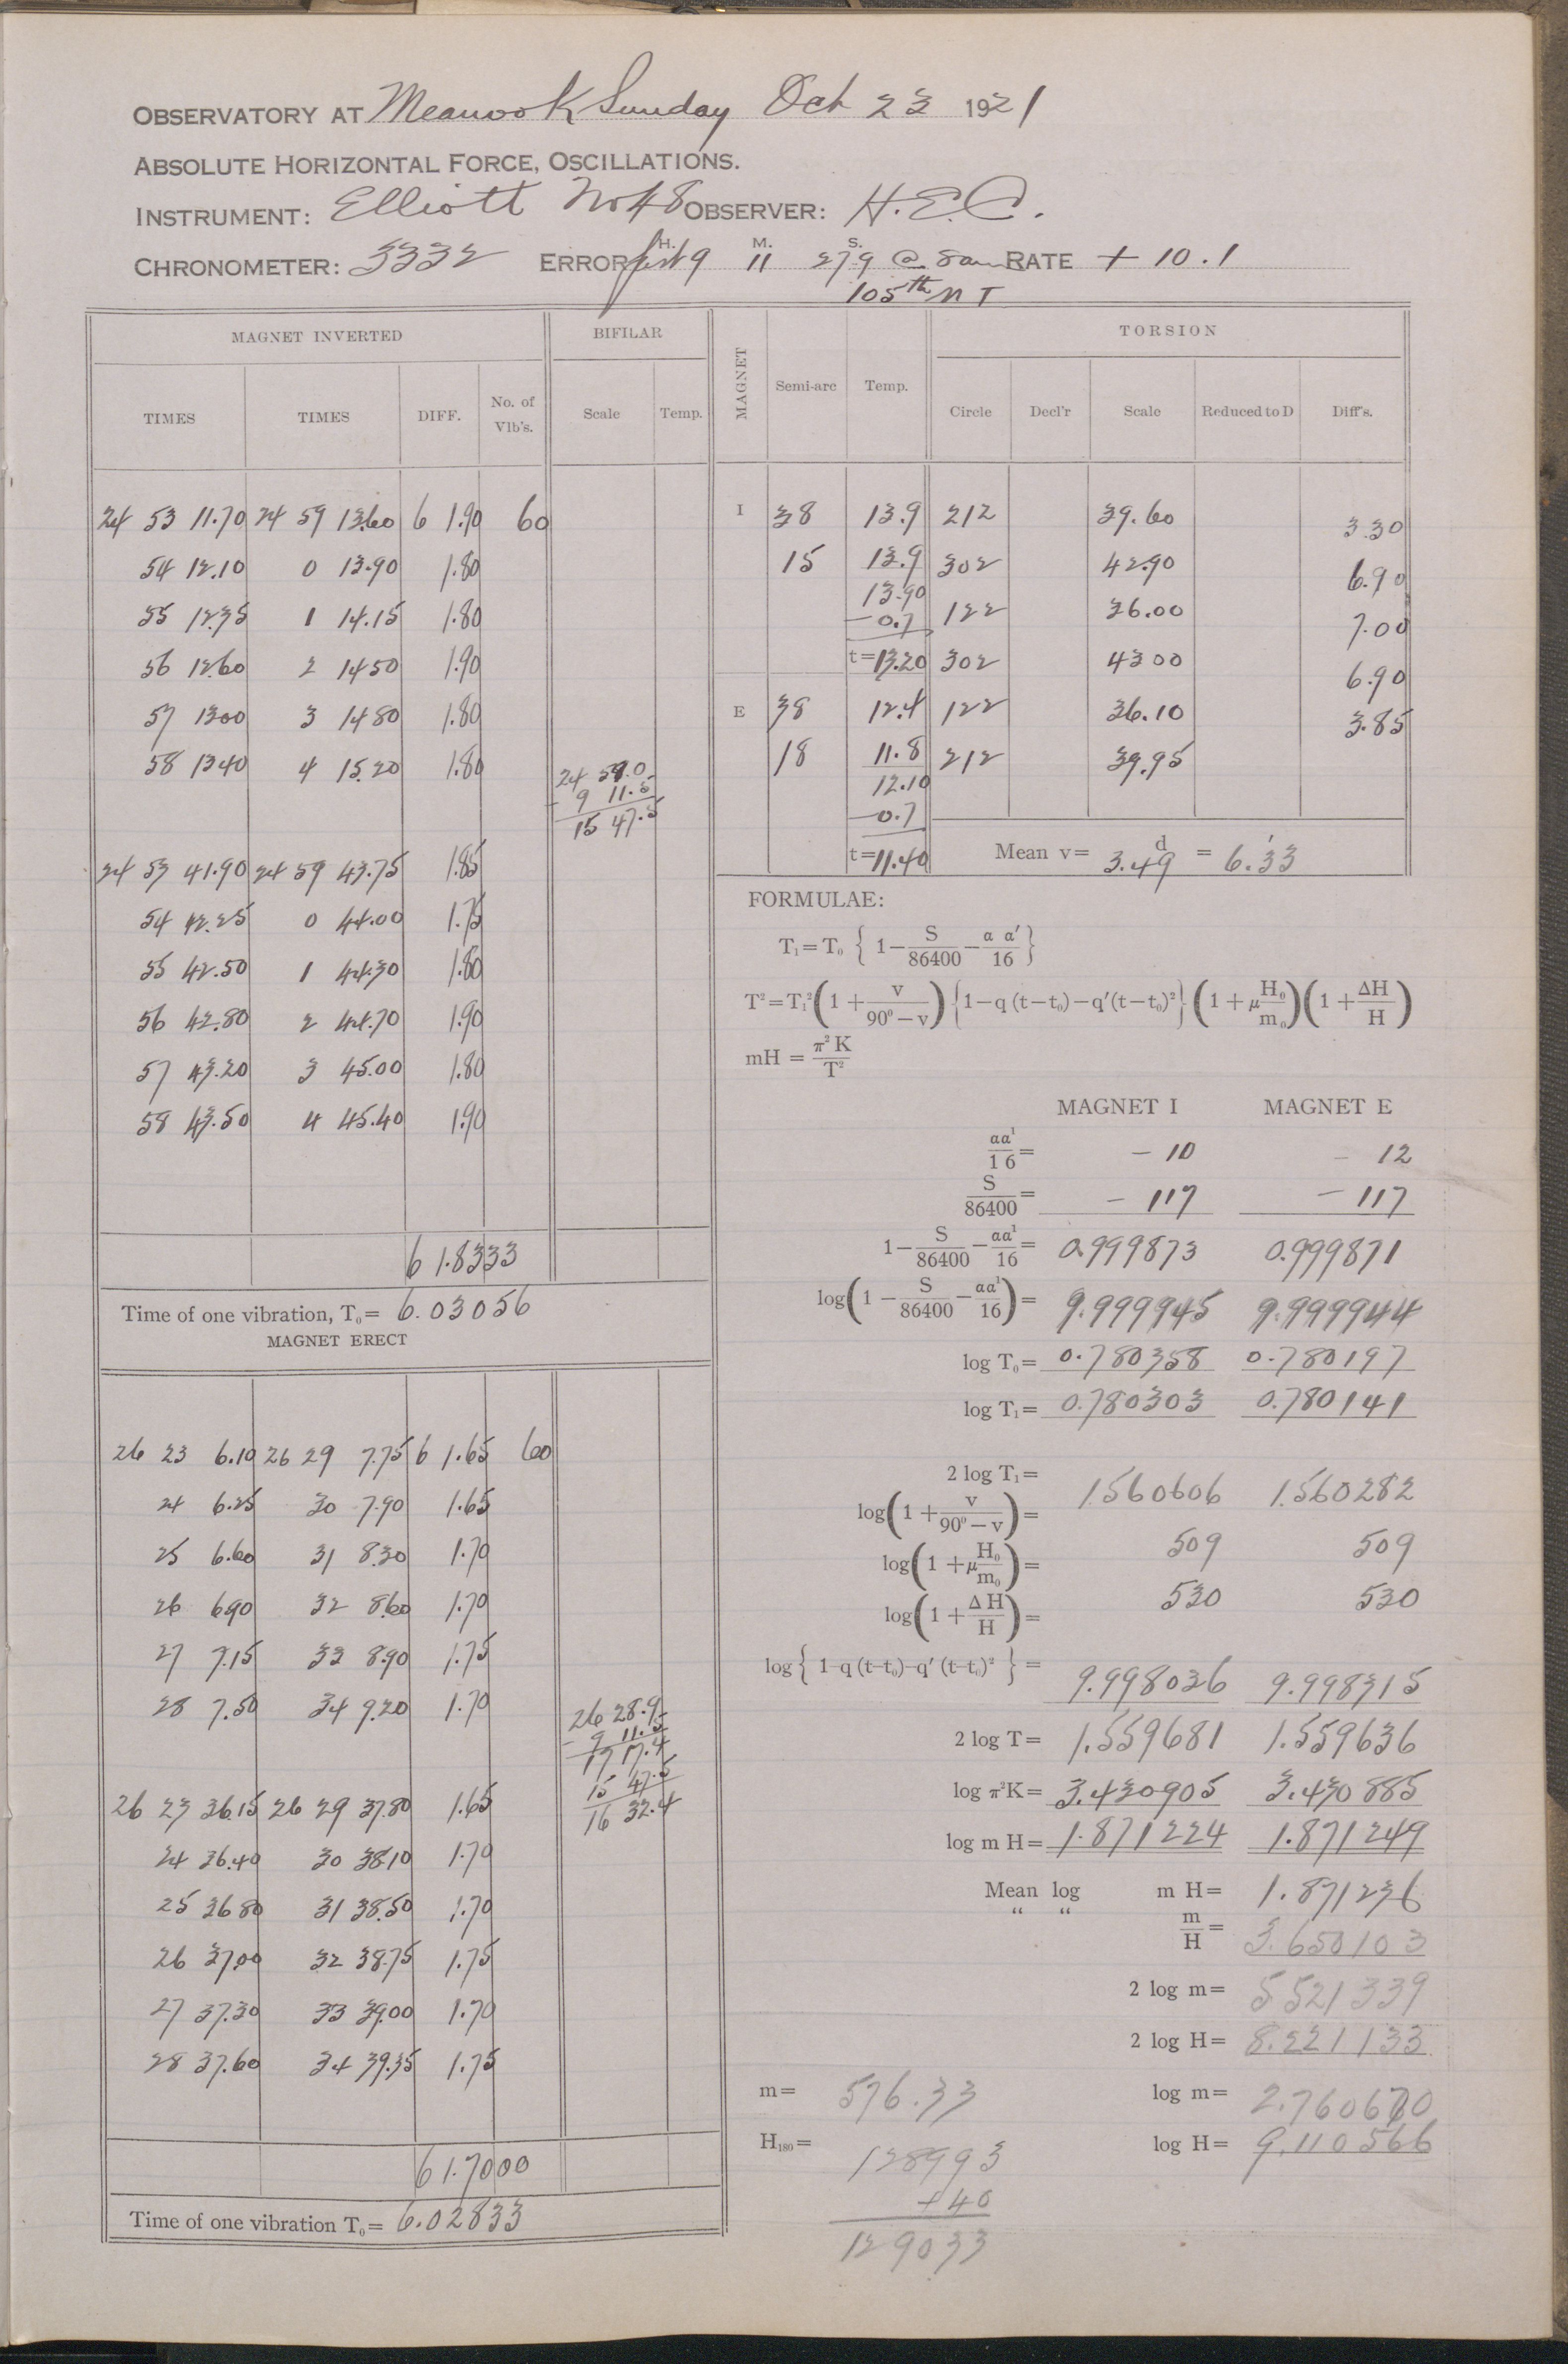 OBSERVATORY AT Meanook Sunday Oct 23 1921
ABSOLUTE HORIZONTAL FORCE, OSCILLATIONS.
INSTRUMENT: Elliott No 48 OBSERVER: H.E.C.
CHRONOMETER: 3332 ERROR fast H. 9 M. 11 S. 27.9 @ 8am RATE + 10.1
105th M T
MAGNET INVERTED BIFILAR
TIMES TIMES DIFF. No. of Vib's. Scale Temp.
24 53 11.70 24 59 13.60 6 1.90 60
54 12.10 0 13.90 1.80
55 12.35 1 14.15 1.80
56 12.60 2 14.50 1.90
57 13.00 3 14.80 1.80
58 13.40 4 15.20 1.80
24 59.0
- 9 11.5
15 47.5
24 53 41.90 24 59 43.75 1.85
54 42.25 0 44.00 1.75
55 42.50 1 44.30 1.80
56 42.80 2 44.70 1.90
57 43.20 3 45.00 1.80
58 43.50 4 45.40 1.90
6 1.8333
Time of one vibration, T₀= 6.03056
MAGNET ERECT
26 23 6.10 26 29 7.75 6 1.65 60
24 6.25 30 7.90 1.65
25 6.60 31 8.30 1.70
26 6.90 32 8.60 1.70
27 7.15 33 8.90 1.75
28 7.50 34 9.20 1.70
26 28.9
- 9 11.5
17 17.4
15 47.5
16 32.4
26 23 36.15 26 29 37.80 1.65
24 36.40 30 38.10 1.70
25 36.80 31 38.50 1.70
26 37.00 32 38.75 1.75
27 37.30 33 39.00 1.70
28 37.60 34 39.35 1.75
6 1.7000
Time of one vibration T₀= 6.02833
MAGNET Semi-arc Temp. TORSION
Circle Decl'r Scale Reduced to D Diff's.
I 38 13.9 212 39.60
3.30
15 13.9 302 42.90
6.90
13.90
-0.7 122 36.00
7.00
t=13.20 302 43.00
6.90
E 38 12.4 122 36.10
3.85
18 11.8 212 39.95
12.10
-0.7
t=11.40 Mean v= 3.49 d = 6.'33
FORMULAE:
T₁=T₀ { 1 − S/86400 − α α′/16 }
T²=T₁² (1 + v/90°−v) {1−q (t−t₀)−q′(t−t₀)²} (1 + μ H₀/m₀) (1 + ΔH/H)
mH = π² K/T²
MAGNET I MAGNET E
αα¹/16 = − 10 − 12
S/86400 = − 117 − 117
1− S/86400 − αα¹/16 = 0.999873 0.999871
log (1 − S/86400 − αα¹/16) = 9.999945 9.999944
log T₀= 0.780358 0.780197
log T₁= 0.780303 0.780141
2 log T₁= 1.560606 1.560282
log (1 + v/90°−v) = 509 509
log (1 + μ H₀/m₀) = 530 530
log (1 + ΔH/H) =
log { 1−q (t−t₀)−q′ (t−t₀)² } = 9.998036 9.998315
2 log T= 1.559681 1.559636
log π²K= 3.430905 3.430885
log m H= 1.871224 1.871249
Mean log m H= 1.871236
“ “ m/H = 3.650103
2 log m= 5.521339
2 log H= 8.221133
m= 576.33 log m= 2.760670
H₁₈₀= 128993 log H= 9.110566
+40
129033